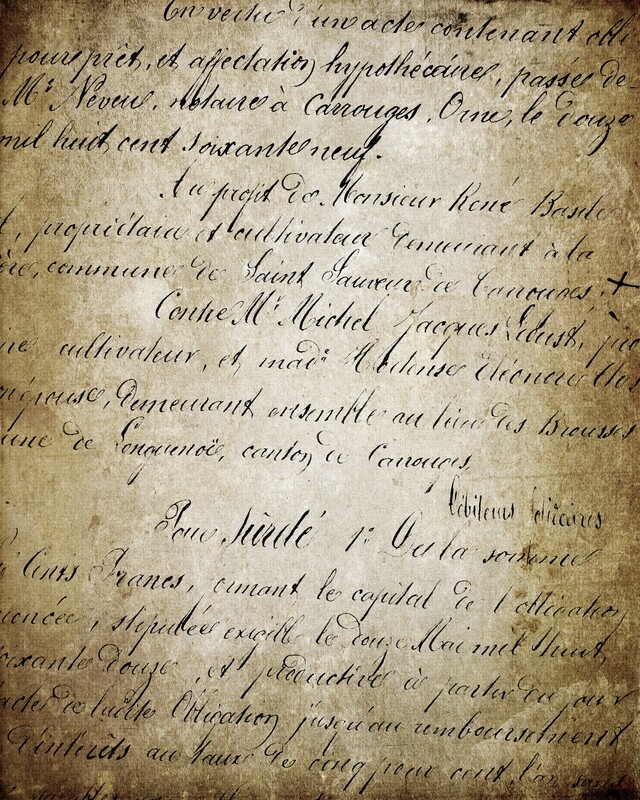 En vertu d'un acte contenant obli
pour prêt, et affectation hypothécaire, passée de
Mᵉ Neveu, notaire à Carrouges, Orne, le douze
mil huit cent soixante neuf.
Au profit de Monsieur René Basile
propriétaire et cultivateur demeurant à la
ère, commune de Saint Sauveur de Carrouges. +
Contre Mʳ Michel Jacques
cultivateur, et madᵉ Hortense Eléonore
épouse, demeurant ensemble au lieu des Brousses
une de Longuenoë, canton de Carrouges,
Débiteurs solidaires
Pour Sûreté 1º De la somme
Cents Francs, formant le capital de l'obligation
énoncée, stipulée exigible le douze Mai mil huit
soixante douze, et productive à partir du jour
acte de ladite Obligation jusqu'au remboursement
d'intérêts au taux de cinq pour cent l'an sans